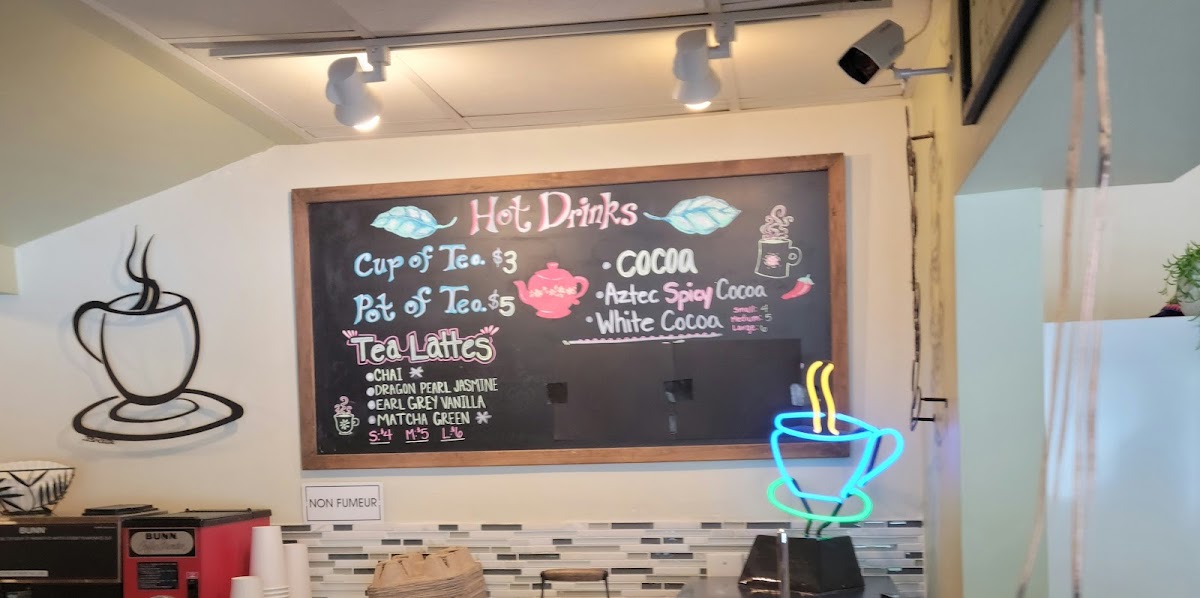 Hot Drinks
Cup of Tea $3
Pot of Tea $5
Tea Lattes
• CHAI *
• DRAGON PEARL JASMINE
• EARL GREY VANILLA
• MATCHA GREEN *
S:$4 M:$5 L:$6
• COCOA
• Aztec Spicy Cocoa
• White Cocoa
Small: 4
Medium: 5
Large: 6
NON FUMEUR
BUNN
BUNN